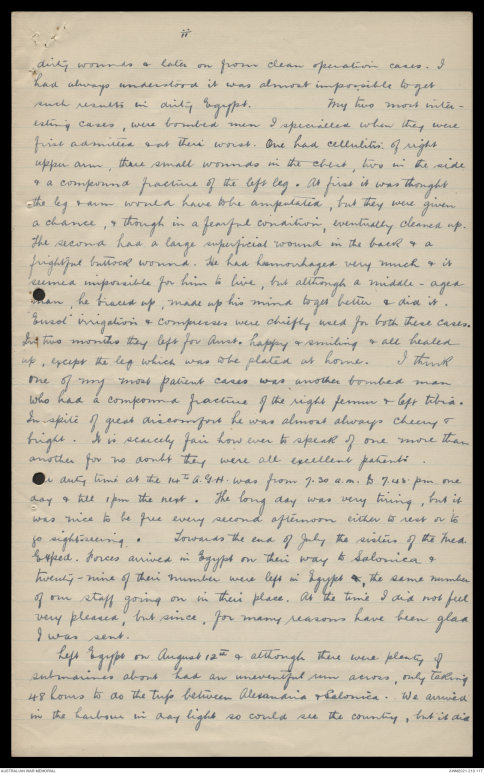 ii
dirty wounds & later on from clean operation cases. I
had always understood it was almost impossible to get
such results in dirty Egypt. My two most inter-
esting cases, were bombed men I specialled when they were
first admitted & at their worst. One had cellulitis of right
upper arm, three small wounds in the chest, two in the side
& a compound fracture of the left leg. At first it was thought
the leg & arm would have to be amputated, but they were given
a chance, & though in a fearful condition, eventually cleaned up.
The second had a large superficial wound in the back & a
frightful buttock wound. He had hemorrhaged very much & it
seemed impossible for him to live, but although a middle-aged
man, he braced up, made up his mind to get better & did it.
"Eusol" irrigation & compresses were chiefly used for both these cases.
In two months they left for Aust. happy & smiling & all healed
up, except the leg which was to be plated at home. I think
one of my most patient cases was another bombed man
who had a compound fracture of the right femur & left tibia.
In spite of great discomfort he was almost always cheery &
bright. It is scarcely fair however to speak of one more than
another for no doubt they were all excellent patients.
Our duty time at the 14th A.G.H. was from 7.30 a.m. to 7.45 pm one
day & till 1 pm the next. The long day was very tiring, but it
was nice to be free every second afternoon either to rest or to
go sightseeing. Towards the end of July the sisters of the Med.
Exped. Forces arrived in Egypt on their way to Salonica &
twenty-nine of their number were left in Egypt &, the same number
of our staff going on in their place. At the time I did not feel
very pleased, but since, for many reasons have been glad
I was sent.
Left Egypt on August 12th & although there were plenty of
submarines about had an uneventful run across, only taking
48 hours to do the trip between Alexandria & Salonica. We arrived
in the harbour in day light so could see the country, but it did
AUSTRALIAN WAR MEMORIAL